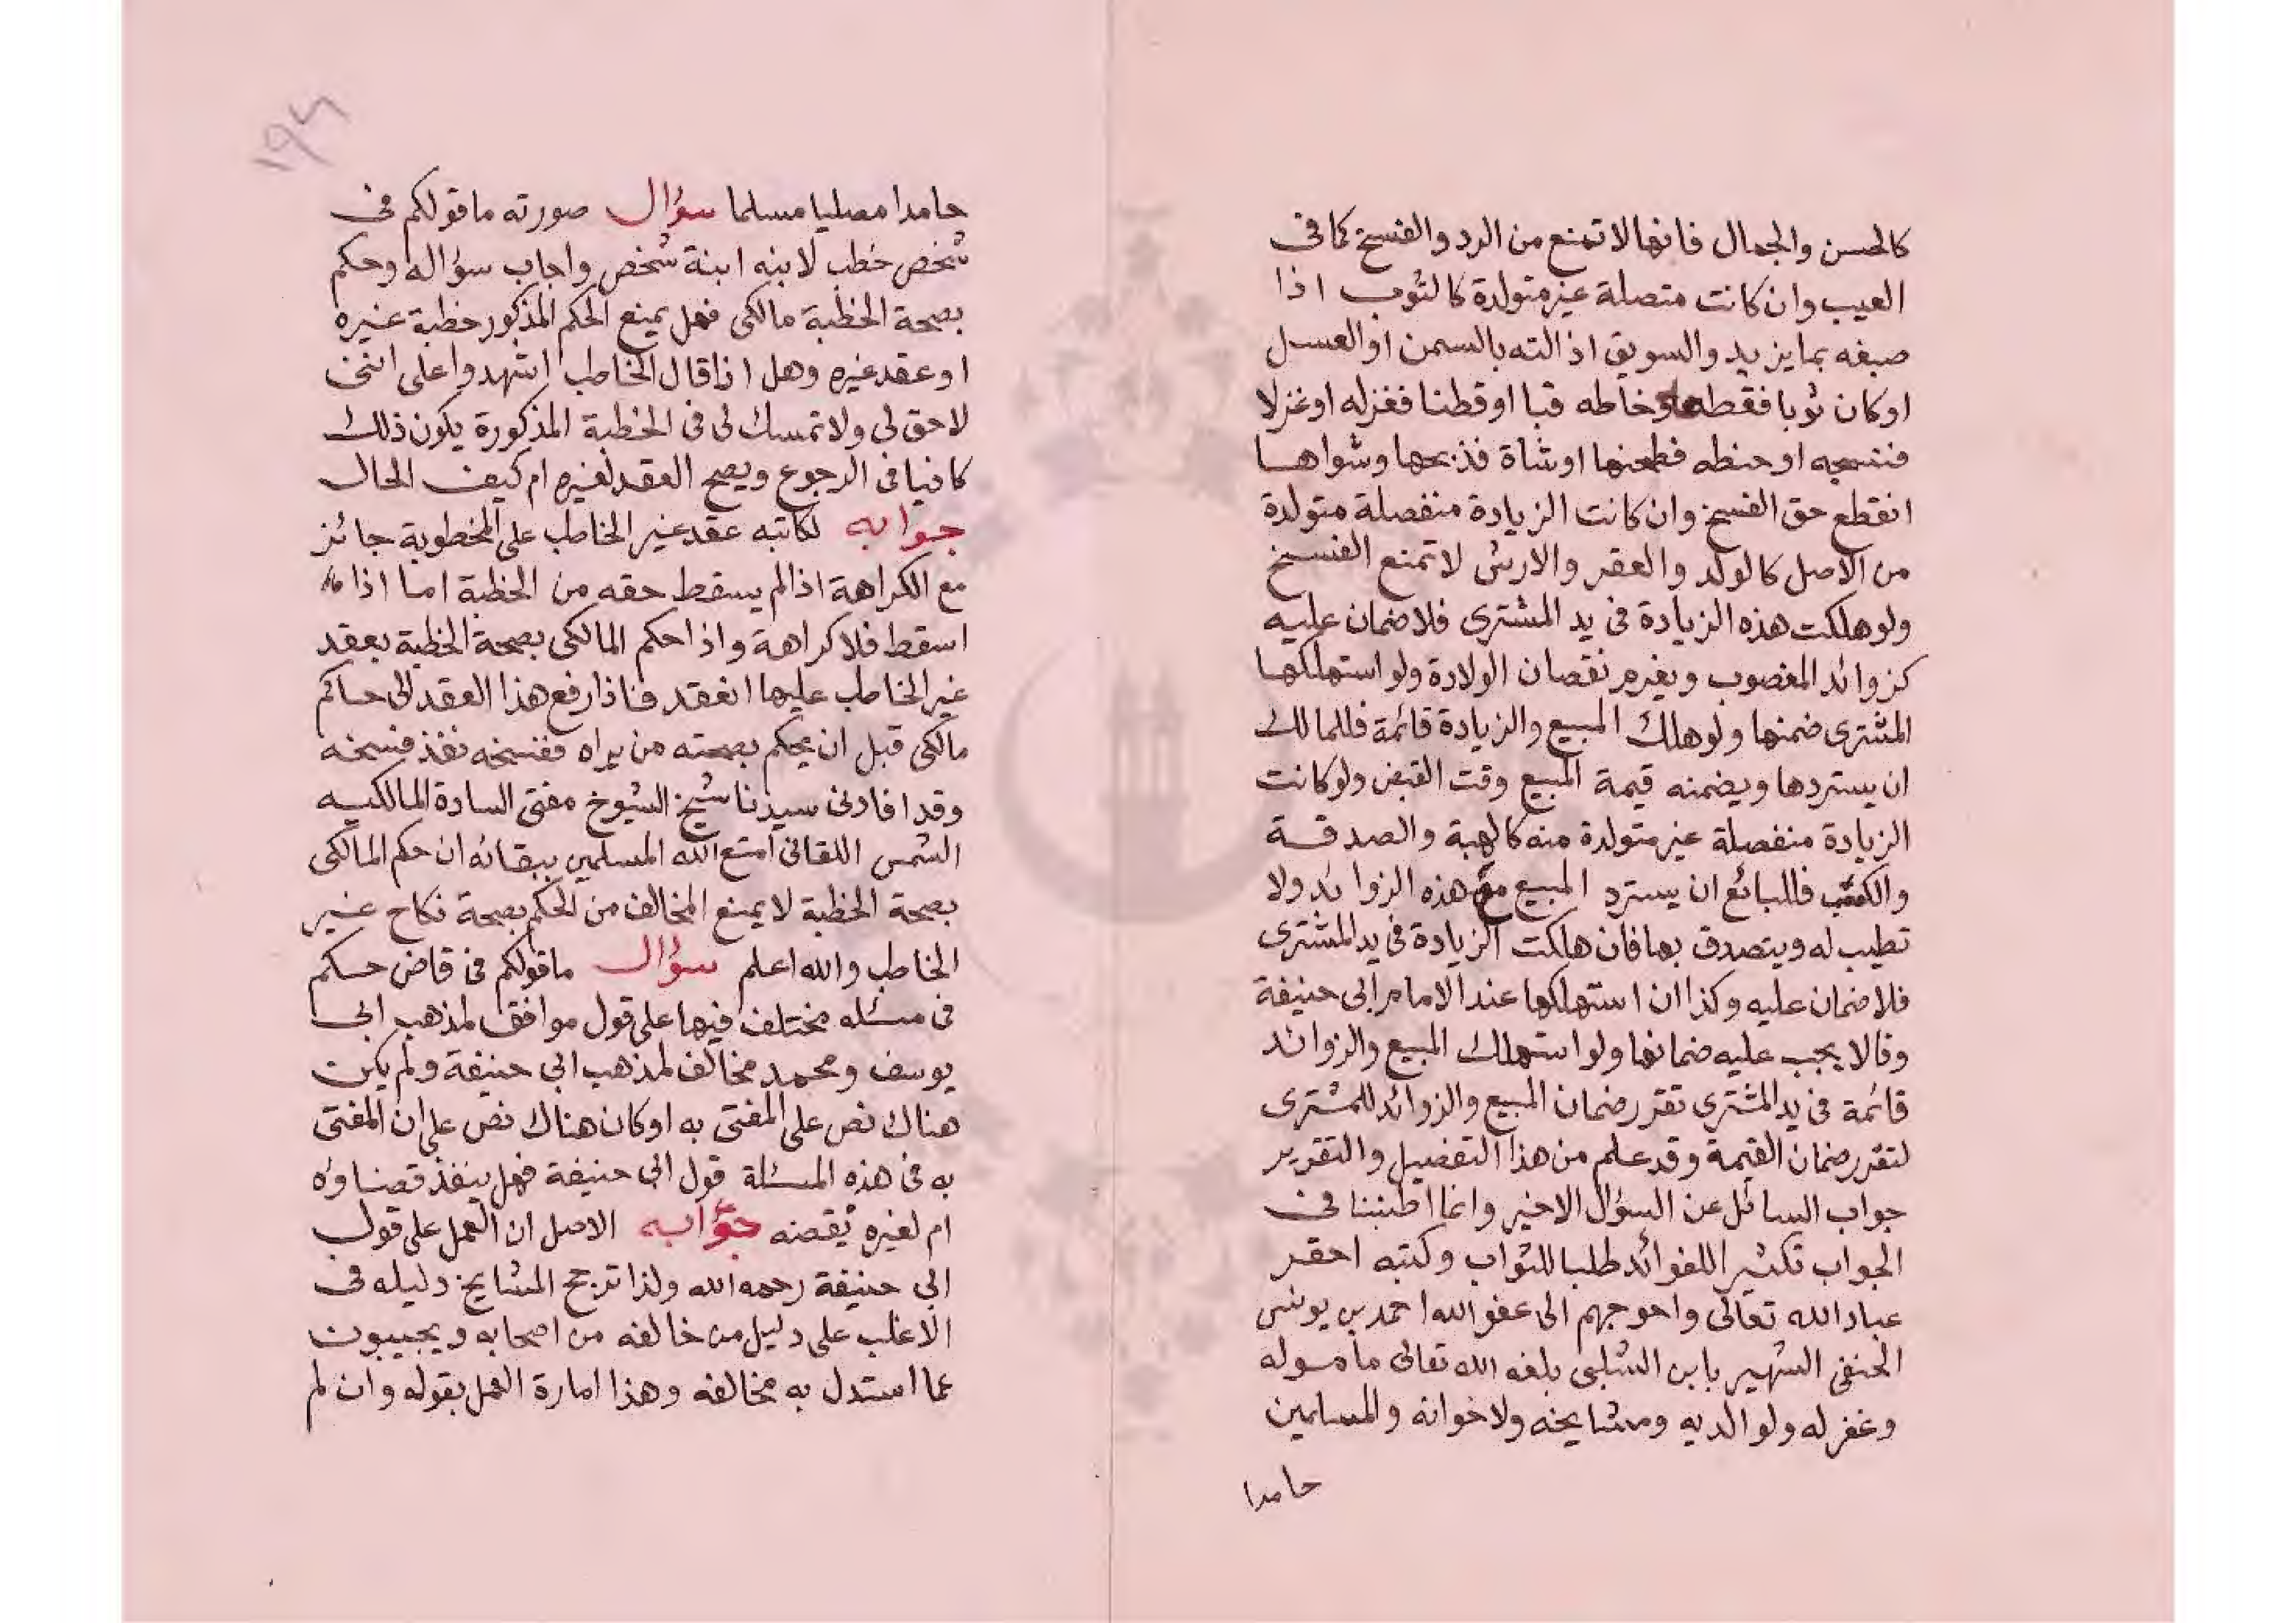 كالحسن والجمال فانها لا تمنع من الرد والفسخ كما فى
العيب وان كانت متصلة غير متولدة كالثوب اذا
صبغه بما يزيد والسويق اذا لته بالسمن او العسل
او كان ثوبا فقطعه وخاطه قبا او قطنا فغزله او غزلا
فنسجه او حنطه فطحنها او شاة فذبحها وشواها
انقطع حق الفسخ وان كانت الزيادة منفصلة متولدة
من الاصل كالولد والعقر والارش لا تمنع الفسخ
ولو هلكت هذه الزيادة فى يد المشترى فلا ضمان عليه
كزوائد المغصوب ويغرم نقصان الولادة ولو استهلكها
المشترى ضمنها ولو هلك المبيع والزيادة قائمة فللمالك
ان يستردها ويضمنه قيمة المبيع وقت القبض ولو كانت
الزيادة منفصلة غير متولدة منه كالهبة والصدقة
والكسب فللبائع ان يسترد المبيع مع هذه الزوائد ولا
تطيب له ويتصدق بها فان هلكت الزيادة فى يد المشترى
فلا ضمان عليه وكذا ان استهلكها عند الامام ابى حنيفة
وقالا يجب عليه ضمانها ولو استهلك المبيع والزوائد
قائمة فى يد المشترى تقرر ضمان المبيع والزوائد للمشترى
لتقرر ضمان القيمة وقد علم من هذا التفصيل والتقرير
جواب السائل عن السؤال الاخير وانما اطنبنا فى
الجواب تكثيرا للفوائد طلبا للثواب وكتبه احقر
عباد الله تعالى واحوجهم الى عفو الله احمد بن يونس
الحنفى الشهير بابن الشلبى بلغه الله تعالى مأموله
وغفر له ولوالديه ومشايخه ولاخوانه والمسلمين
حامدا
١٩٦
حامدا مصليا مسلما سؤال صورته ما قولكم فى
شخص خطب لابنه ابنة شخص واجاب سؤاله وحكم
بصحة الخطبة مالكى فهل يمنع الحكم المذكور خطبة غيره
او عقد غيره وهل اذا قال الخاطب اشهدوا على اننى
لا حق لى ولا تمسك لى فى الخطبة المذكورة يكون ذلك
كافيا فى الرجوع ويصح العقد لغيره ام كيف الحال
جوابه لكاتبه عقد غير الخاطب على المخطوبة جائز
مع الكراهة اذا لم يسقط حقه من الخطبة اما اذا
اسقط فلا كراهة واذا حكم المالكى بصحة الخطبة بعقد
غير الخاطب عليها انعقد فاذا رفع هذا العقد لى حاكم
مالكى قبل ان يحكم بصحته من يراه ففسخه نفذ فسخه
وقد افادنى سيدنا شيخ الشيوخ مفتى السادة المالكيه
الشمس اللقانى امتع الله المسلمين ببقائه ان حكم المالكى
بصحة الخطبة لا يمنع المخالف من الحكم بصحة نكاح غير
الخاطب والله اعلم سؤال ما قولكم فى قاض حكم
فى مسئله مختلف فيها على قول موافق لمذهب ابى
يوسف ومحمد مخالف لمذهب ابى حنيفة ولم يكن
هناك نص على المفتى به او كان هناك نص على ان المفتى
به فى هذه المسئلة قول ابى حنيفة فهل ينفذ قضاؤه
ام لغيره نقضه جوابه الاصل ان العمل على قول
ابى حنيفة رحمه الله ولذا ترجح المشايخ دليله فى
الاغلب على دليل من خالفه من اصحابه ويجيبون
عما استدل به مخالفه وهذا امارة العمل بقوله وان لم